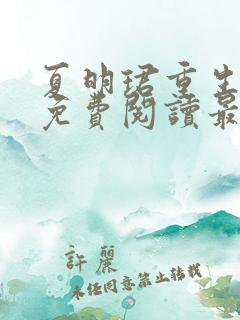 夏明珺重生
免費閱讀最
許麗
未经同意禁止转载